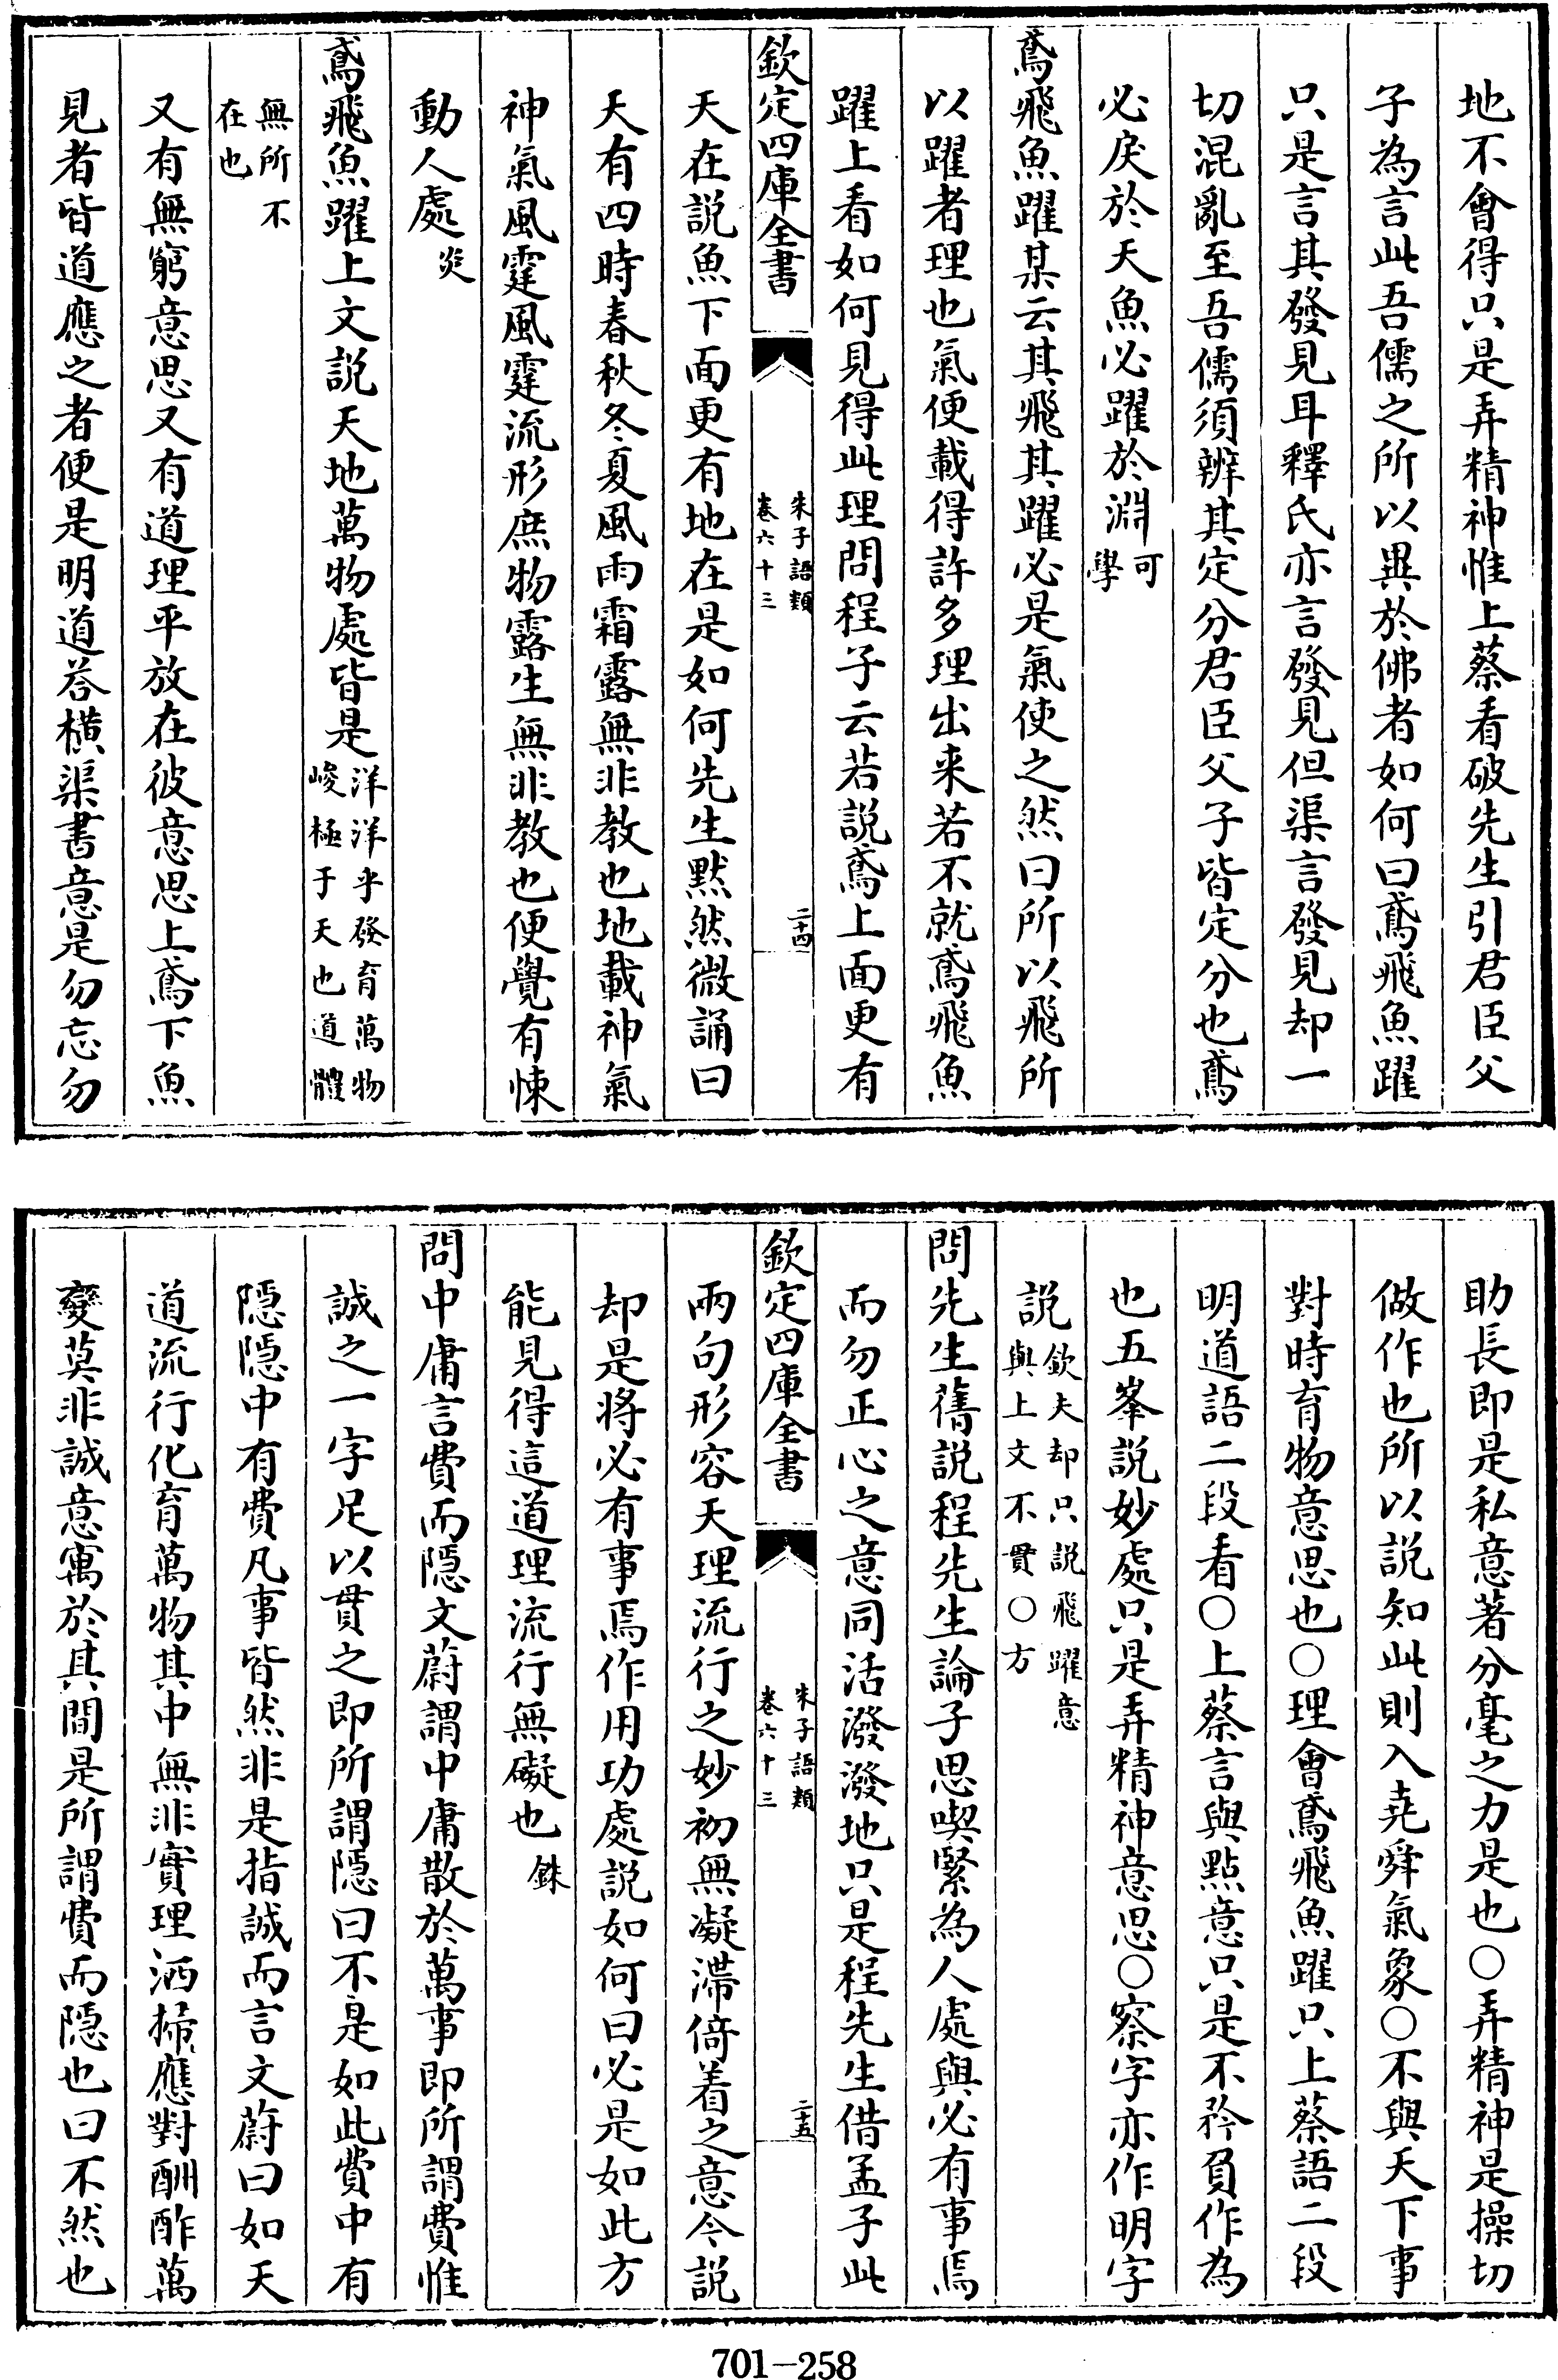 地不會得只是弄精神惟上蔡看破先生引君臣父
子為言此吾儒之所以異於佛者如何曰鳶飛魚躍
只是言其發見耳釋氏亦言發見但渠言發見却一
切混亂至吾儒須辨其定分君臣父子皆定分也鳶
必戾於天魚必躍於淵可學
鳶飛魚躍某云其飛其躍必是氣使之然曰所以飛所
以躍者理也氣便載得許多理出來若不就鳶飛魚
躍上看如何見得此理問程子云若説鳶上面更有
欽定四庫全書
朱子語類
卷六十三
二十四
天在説魚下面更有地在是如何先生黙然微誦曰
天有四時春秋冬夏風雨霜露無非教也地載神氣
神氣風霆風霆流形庶物露生無非教也便覺有悚
動人處炎
鳶飛魚躍上文説天地萬物處皆是洋洋乎發育萬物
峻極于天也道體
無所不
在也
又有無窮意思又有道理平放在彼意思上鳶下魚
見者皆道應之者便是明道荅橫渠書意是勿忘勿
助長即是私意著分毫之力是也○弄精神是操切
做作也所以説知此則入堯舜氣象○不與天下事
對時育物意思也○理會鳶飛魚躍只上蔡語二段
明道語二段看○上蔡言與點意只是不矜負作為
也五峯説妙處只是弄精神意思○察字亦作明字
説欽夫却只説飛躍意
與上文不貫○方
問先生舊説程先生論子思喫緊為人處與必有事焉
而勿正心之意同活潑潑地只是程先生借孟子此
欽定四庫全書
朱子語類
卷六十三
二十五
兩句形容天理流行之妙初無凝滯倚着之意今説
却是將必有事焉作用功處説如何曰必是如此方
能見得這道理流行無礙也銖
問中庸言費而隱文蔚謂中庸散於萬事即所謂費惟
誠之一字足以貫之即所謂隱曰不是如此費中有
隱隱中有費凡事皆然非是指誠而言文蔚曰如天
道流行化育萬物其中無非實理洒掃應對酬酢萬
變莫非誠意寓於其間是所謂費而隱也曰不然也
701—258